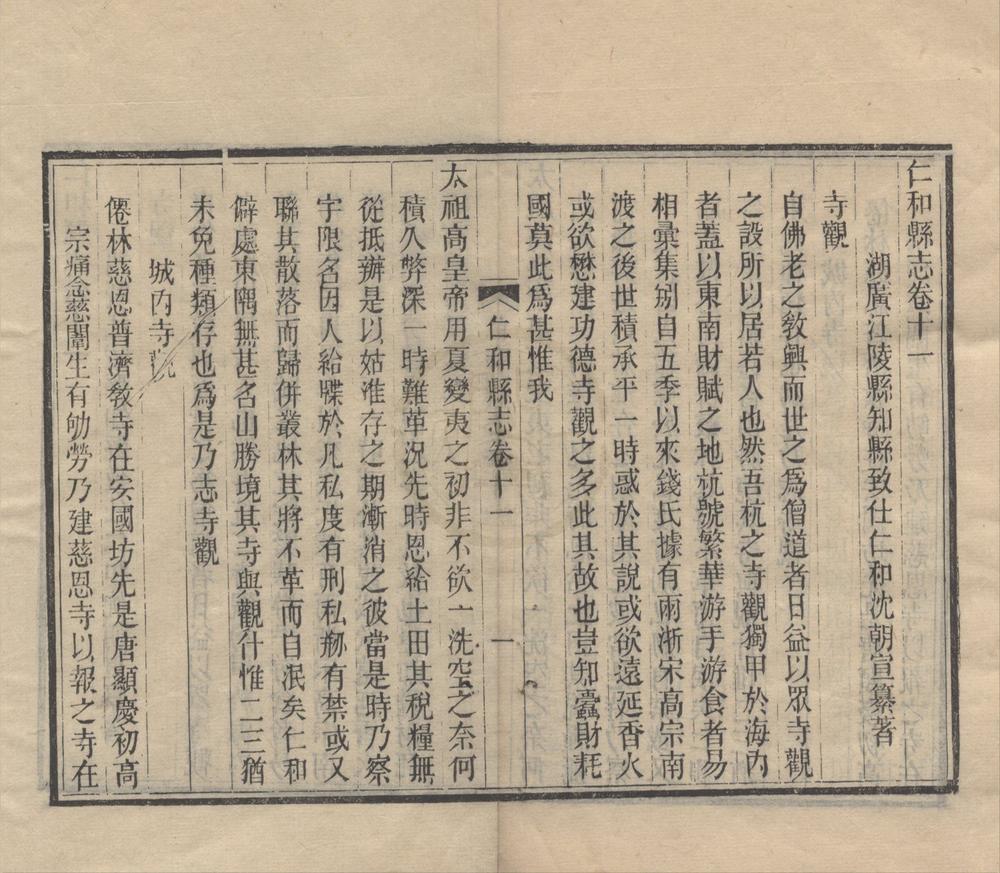 仁和縣志卷十一
湖廣江陵縣知縣致仕仁和沈朝宣纂著
寺觀
自佛老之敎興而世之爲僧道者日益以眾寺觀
之設所以居若人也然吾杭之寺觀獨甲於海內
者蓋以東南財賦之地杭號繁華游手游食者易
相彙集別自五季以來錢氏據有兩浙宋高宗南
渡之後世積承平一時惑於其說或欲遠延香火
或欲懋建功德寺觀之多此其故也豈知蠹財耗
國莫此爲甚惟我
仁和縣志卷十一 一
太祖高皇帝用夏變夷之初非不欲一洗空之奈何
積久弊深一時難革況先時恩給土田其稅糧無
從抵辦是以姑准存之期漸消之彼當是時乃察
宇限名因人給牒於凡私度有刑私剏有禁或又
聯其散落而歸併叢林其將不革而自泯矣仁和
僻處東隅無甚名山勝境其寺與觀什惟二三猶
未免種類存也爲是乃志寺觀
城內寺觀
僊林慈恩普濟敎寺在安國坊先是唐顯慶初高
宗痛念慈闈生有劬勞乃建慈恩寺以報之寺在